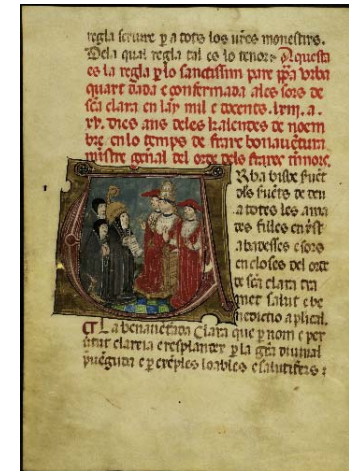 regla seruire y a tots los ures monestirs.
Dela qual regla tal es lo tenor: Aquesta
es la regla p lo sanctissim pare papa vrba
quart dada e confermada ales sors de
sca clara en lay mil e docents. lxiii. a
xv. dies ans deles kalendes de noem
bre. en lo temps de frare bonauentura
mistre genal del orde dels frares menors.
Rba bisbe suet
dels suets de deu
a totes les ama
des filles en xst
abadesses e sors
encloses del orde
de sca clara tra
met salut e be
nedictio aplical.
La benauenrada Clara que p nom e per
uirtut clareia e resplandex p la gra diuinal
preuenguda e p exemples loables e salutifers: